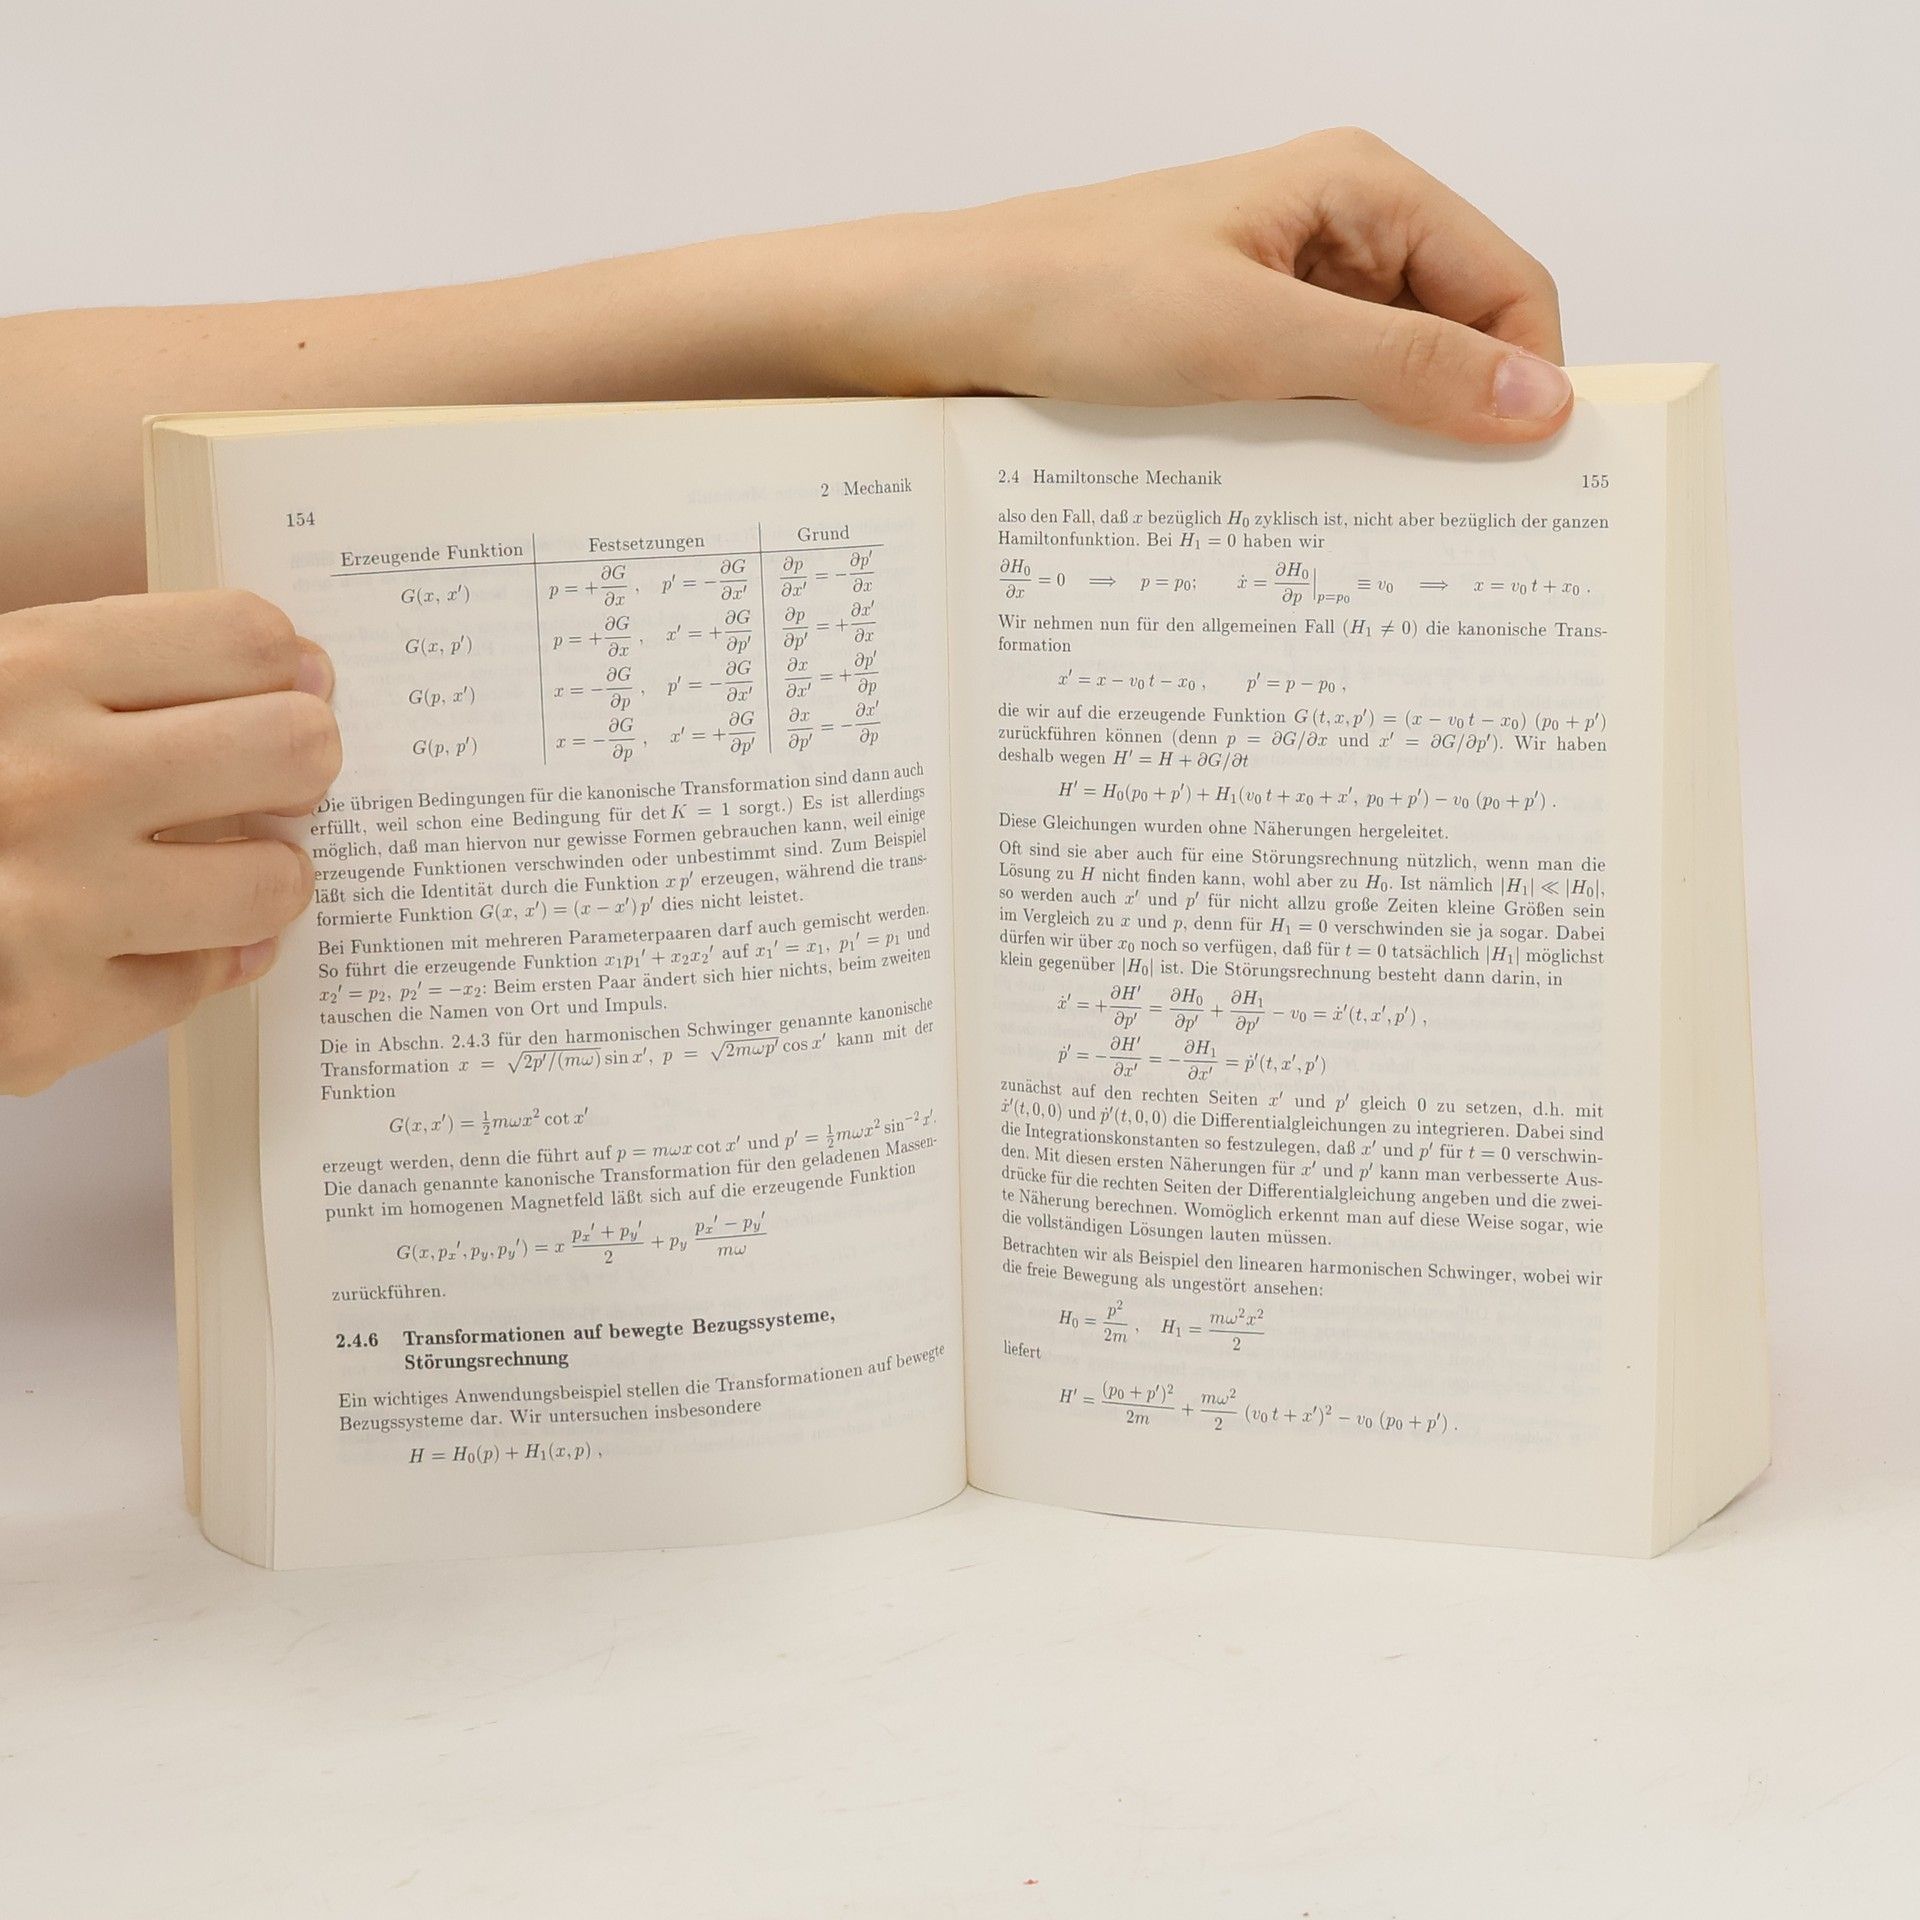 154
2 Mechanik
Erzeugende Funktion Festsetzungen Grund
G(x, x′) p = +∂G/∂x , p′ = −∂G/∂x′ ∂p/∂x′ = −∂p′/∂x
G(x, p′) p = +∂G/∂x , x′ = +∂G/∂p′ ∂p/∂p′ = +∂x′/∂x
G(p, x′) x = −∂G/∂p , p′ = −∂G/∂x′ ∂x/∂x′ = +∂p′/∂p
G(p, p′) x = −∂G/∂p , x′ = +∂G/∂p′ ∂x/∂p′ = −∂x′/∂p
(Die übrigen Bedingungen für die kanonische Transformation sind dann auch
erfüllt, weil schon eine Bedingung für det K = 1 sorgt.) Es ist allerdings
möglich, daß man hiervon nur gewisse Formen gebrauchen kann, weil einige
erzeugende Funktionen verschwinden oder unbestimmt sind. Zum Beispiel
läßt sich die Identität durch die Funktion x p′ erzeugen, während die trans-
formierte Funktion G(x, x′) = (x − x′) p′ dies nicht leistet.
Bei Funktionen mit mehreren Parameterpaaren darf auch gemischt werden.
So führt die erzeugende Funktion x₁p₁′ + x₂x₂′ auf x₁′ = x₁, p₁′ = p₁ und
x₂′ = p₂, p₂′ = −x₂: Beim ersten Paar ändert sich hier nichts, beim zweiten
tauschen die Namen von Ort und Impuls.
Die in Abschn. 2.4.3 für den harmonischen Schwinger genannte kanonische
Transformation x = √(2p′/(mω)) sin x′, p = √(2mωp′) cos x′ kann mit der
Funktion
G(x, x′) = ½mωx² cot x′
erzeugt werden, denn die führt auf p = mωx cot x′ und p′ = ½mωx² sin⁻² x′.
Die danach genannte kanonische Transformation für den geladenen Massen-
punkt im homogenen Magnetfeld läßt sich auf die erzeugende Funktion
G(x, pₓ′, p_y, p_y′) = x (pₓ′ + p_y′)/2 + p_y (pₓ′ − p_y′)/(mω)
zurückführen.
2.4.6 Transformationen auf bewegte Bezugssysteme,
Störungsrechnung
Ein wichtiges Anwendungsbeispiel stellen die Transformationen auf bewegte
Bezugssysteme dar. Wir untersuchen insbesondere
H = H₀(p) + H₁(x, p) ,
2.4 Hamiltonsche Mechanik 155
also den Fall, daß x bezüglich H₀ zyklisch ist, nicht aber bezüglich der ganzen
Hamiltonfunktion. Bei H₁ = 0 haben wir
∂H₀/∂x = 0 ⟹ p = p₀; ẋ = ∂H₀/∂p |p=p₀ ≡ v₀ ⟹ x = v₀ t + x₀ .
Wir nehmen nun für den allgemeinen Fall (H₁ ≠ 0) die kanonische Trans-
formation
x′ = x − v₀ t − x₀ , p′ = p − p₀ ,
die wir auf die erzeugende Funktion G (t, x, p′) = (x − v₀ t − x₀) (p₀ + p′)
zurückführen können (denn p = ∂G/∂x und x′ = ∂G/∂p′). Wir haben
deshalb wegen H′ = H + ∂G/∂t
H′ = H₀(p₀ + p′) + H₁(v₀ t + x₀ + x′, p₀ + p′) − v₀ (p₀ + p′) .
Diese Gleichungen wurden ohne Näherungen hergeleitet.
Oft sind sie aber auch für eine Störungsrechnung nützlich, wenn man die
Lösung zu H nicht finden kann, wohl aber zu H₀. Ist nämlich |H₁| ≪ |H₀|,
so werden auch x′ und p′ für nicht allzu große Zeiten kleine Größen sein
im Vergleich zu x und p, denn für H₁ = 0 verschwinden sie ja sogar. Dabei
dürfen wir über x₀ noch so verfügen, daß für t = 0 tatsächlich |H₁| möglichst
klein gegenüber |H₀| ist. Die Störungsrechnung besteht dann darin, in
ẋ′ = +∂H′/∂p′ = ∂H₀/∂p′ + ∂H₁/∂p′ − v₀ = ẋ′(t, x′, p′) ,
ṗ′ = −∂H′/∂x′ = −∂H₁/∂x′ = ṗ′(t, x′, p′)
zunächst auf den rechten Seiten x′ und p′ gleich 0 zu setzen, d.h. mit
ẋ′(t, 0, 0) und ṗ′(t, 0, 0) die Differentialgleichungen zu integrieren. Dabei sind
die Integrationskonstanten so festzulegen, daß x′ und p′ für t = 0 verschwin-
den. Mit diesen ersten Näherungen für x′ und p′ kann man verbesserte Aus-
drücke für die rechten Seiten der Differentialgleichung angeben und die zwei-
te Näherung berechnen. Womöglich erkennt man auf diese Weise sogar, wie
die vollständigen Lösungen lauten müssen.
Betrachten wir als Beispiel den linearen harmonischen Schwinger, wobei wir
die freie Bewegung als ungestört ansehen:
H₀ = p²/2m , H₁ = mω²x²/2
liefert
H′ = (p₀ + p′)²/2m + mω²/2 (v₀ t + x′)² − v₀ (p₀ + p′) .